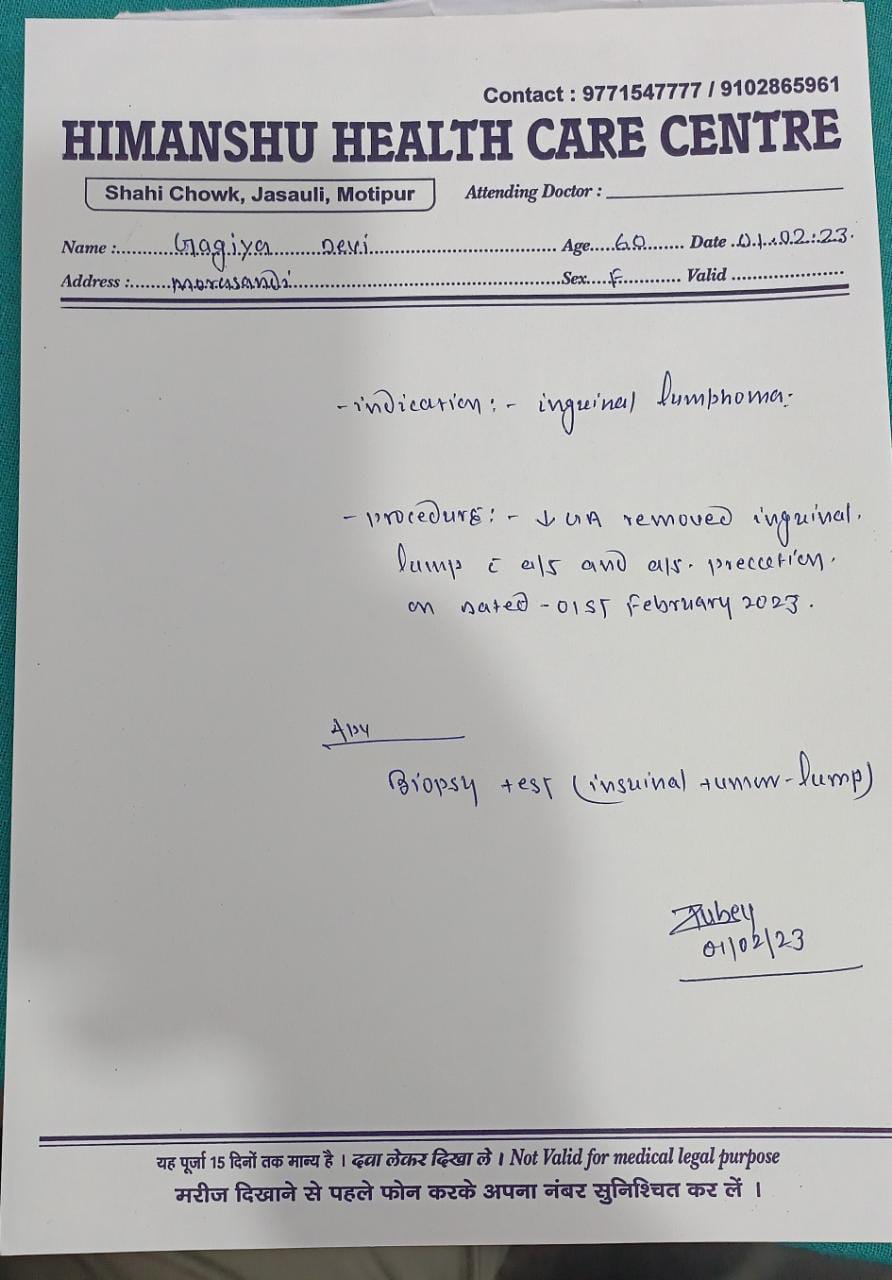 Contact : 9771547777 / 9102865961
HIMANSHU HEALTH CARE CENTRE
Shahi Chowk, Jasauli, Motipur Attending Doctor :
Name : Gagiya Devi Age 60 Date 01.02.23.
Address : Sex F Valid
-indication:- inguinal lumphoma.
-procedure:- ↓ GA removed inguinal.
lump c̄ a/s and a/s. preccation.
on dated -01ST February 2023.
Adv
Biopsy test (insuinal tumor-lump)
01/02/23
यह पूर्जा 15 दिनों तक मान्य है । दवा लेकर दिखा ले । Not Valid for medical legal purpose
मरीज दिखाने से पहले फोन करके अपना नंबर सुनिश्चित कर लें ।